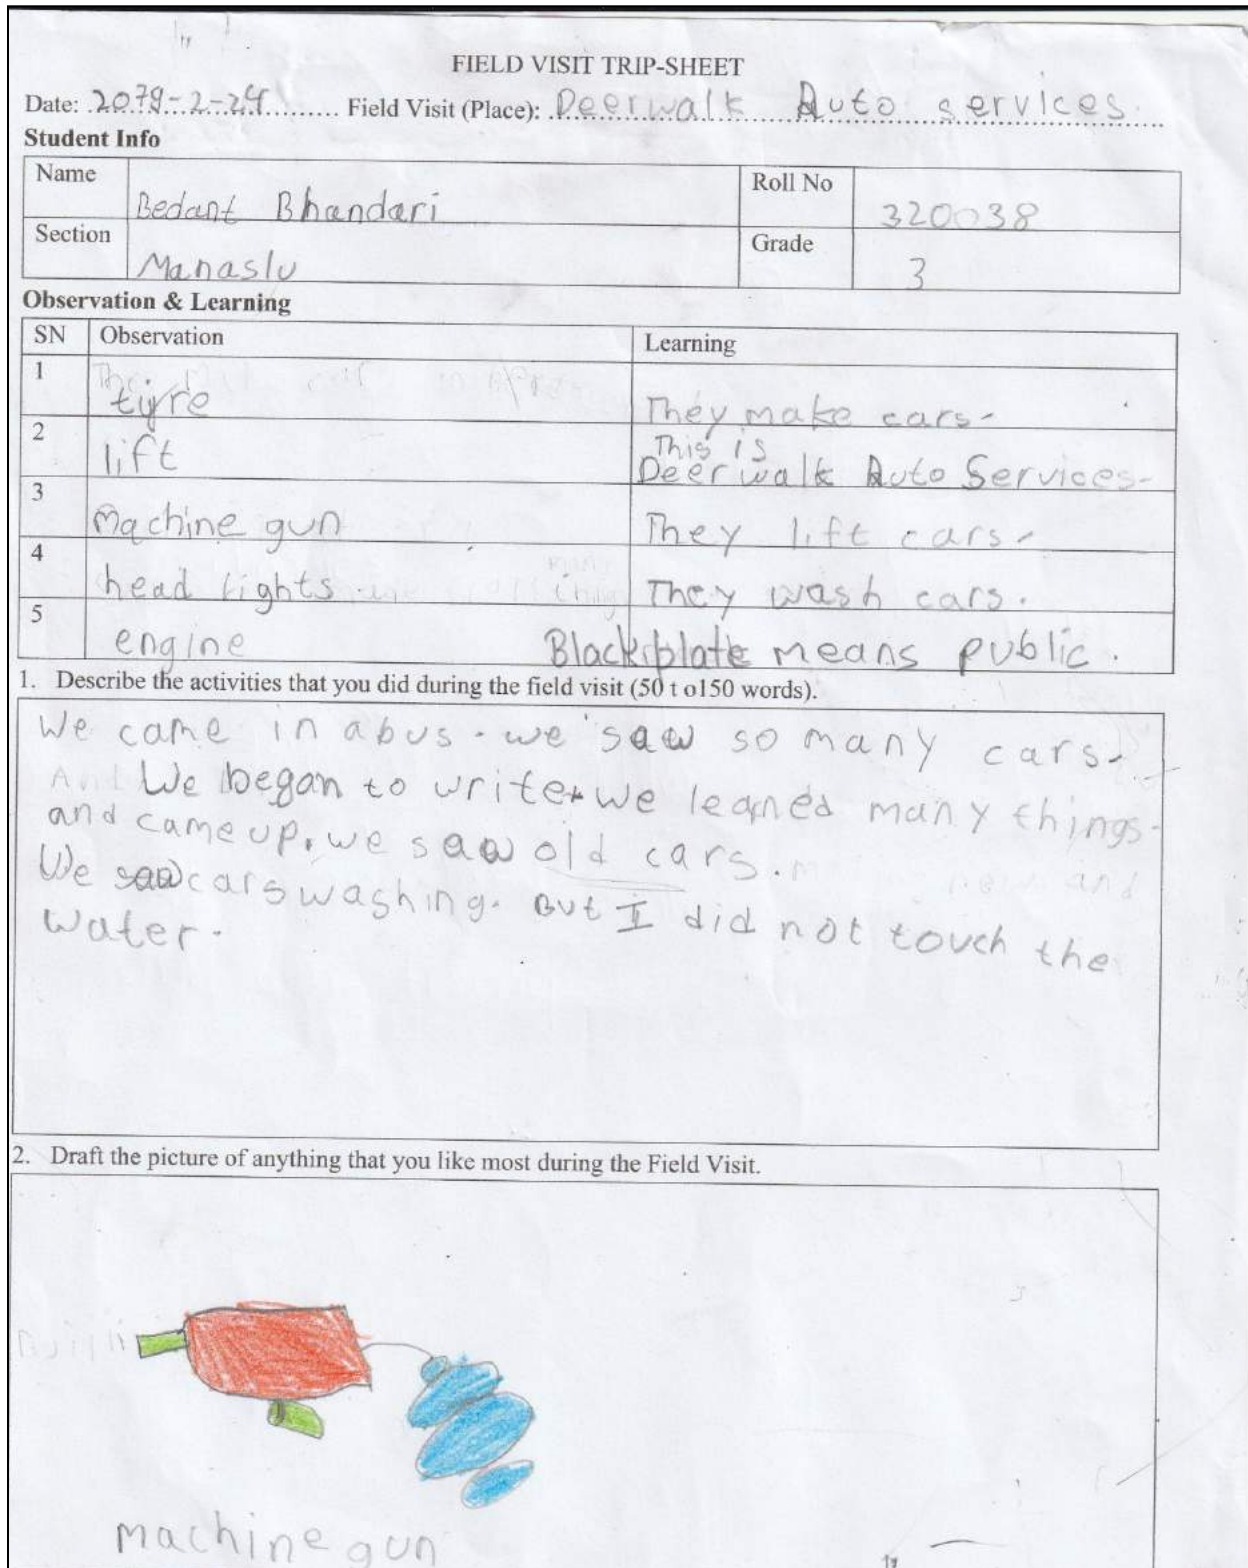 FIELD VISIT TRIP-SHEET
Date: 2079-2-24 Field Visit (Place): Deerwalk Auto services.
Student Info
Name Bedant Bhandari Roll No 320038
Section Manaslu Grade 3
Observation & Learning
SN Observation Learning
1 tyre They make cars.
2 lift This is Deerwalk Auto Services.
3 Machine gun They lift cars.
4 head lights They wash cars.
5 engine Black plate means public.
1. Describe the activities that you did during the field visit (50 t o150 words).
We came in a bus. we saw so many cars.
We began to write. we learned many things.
and came up. we saw old cars.
We saw cars washing. But I did not touch the
water.
2. Draft the picture of anything that you like most during the Field Visit.
machine gun